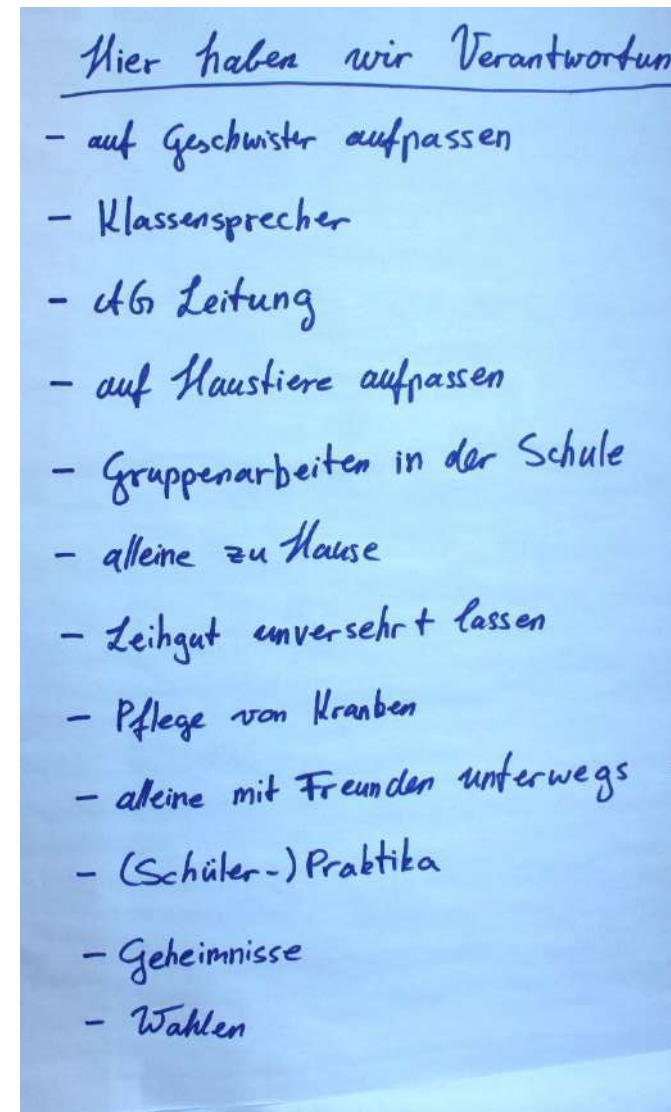 Hier haben wir Verantwortun
- auf Geschwister aufpassen
- Klassensprecher
- AG Leitung
- auf Haustiere aufpassen
- Gruppenarbeiten in der Schule
- alleine zu Hause
- Leihgut unversehrt lassen
- Pflege von Kranken
- alleine mit Freunden unterwegs
- (Schüler-) Praktika
- Geheimnisse
- Wahlen